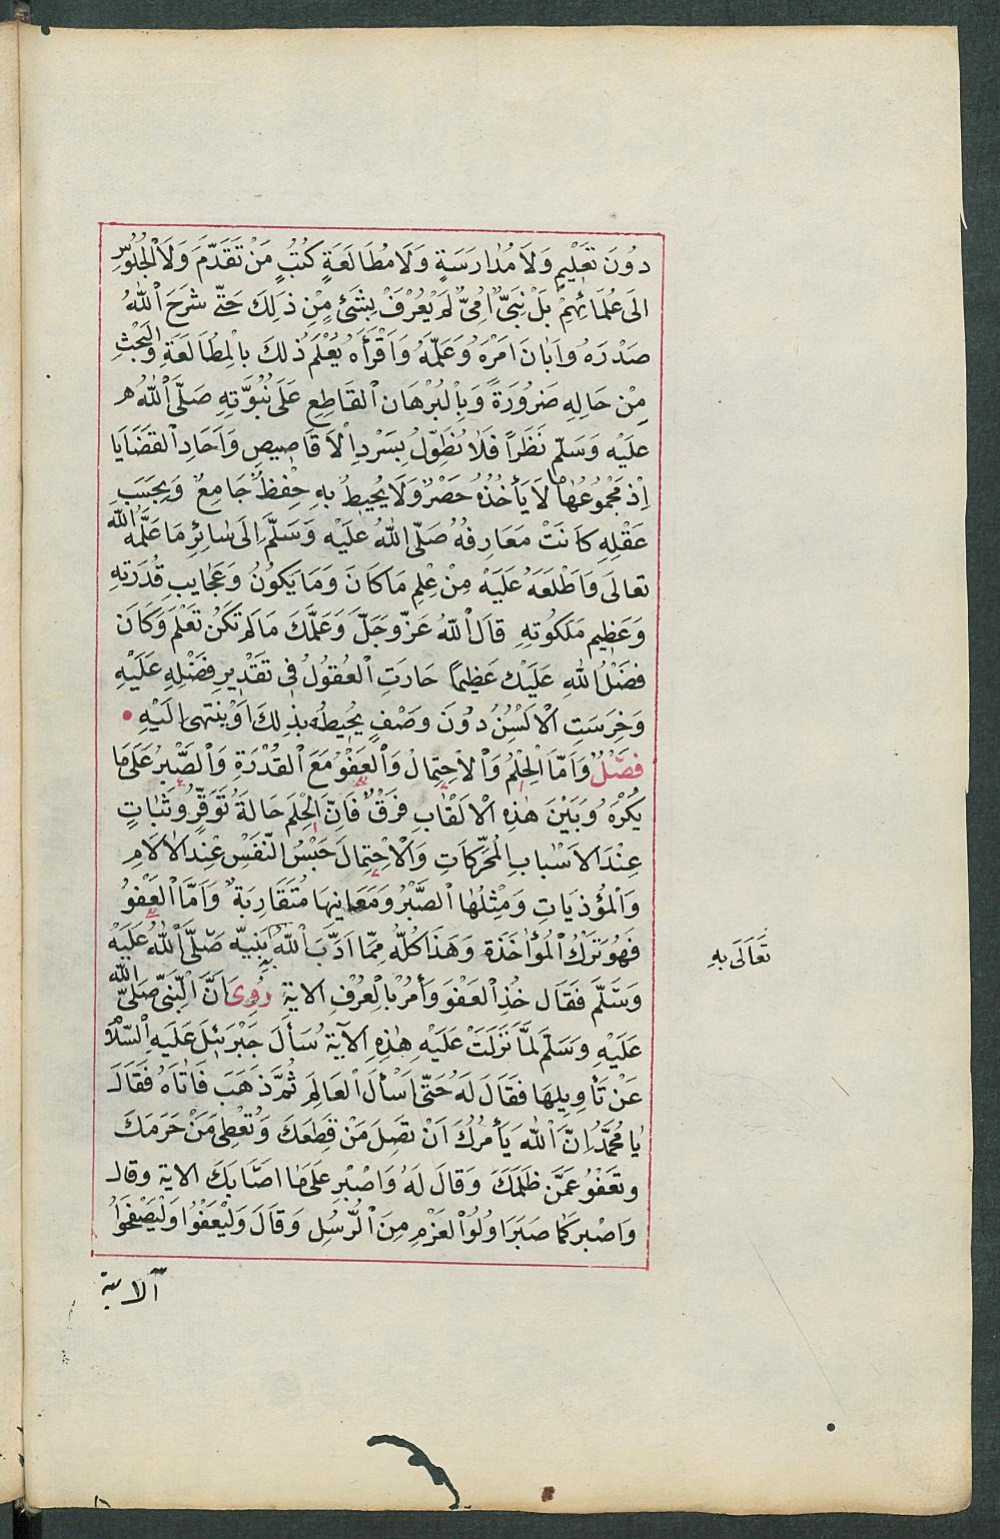 دُونَ تَعْلِيمٍ وَلَا مُدَارَسَةٍ وَلَا مُطَالَعَةِ كُتُبٍ مَنْ تَقَدَّمَ وَلَا الْجُلُوسِ
اِلَى عُلَمَائِهِمْ بَلْ نَبِيٌّ اُمِّيٌّ لَمْ يَعْرِفْ بِشَئٍ مِنْ ذٰلِكَ حَتّٰى شَرَحَ اللهُ
صَدْرَهُ وَاَبَانَ اَمْرَهُ وَعَلَّمَهُ وَاَقْرَأَهُ يُعْلَمُ ذٰلِكَ بِالْمُطَالَعَةِ وَالْبَحْثِ
مِنْ حَالِهِ ضَرُورَةً وَبِالْبُرْهَانِ الْقَاطِعِ عَلَى نُبُوَّتِهِ صَلَّى اللهُ
عَلَيْهِ وَسَلَّمَ نَظَرًا فَلَا نُطَوِّلُ بِسَرْدِ الْاَقَاصِيصِ وَاٰحَادِ الْقَضَايَا
اِذْ مَجْمُوعُهَا مَا لَا يَأْخُذُهُ حَصْرٌ وَلَا يُحِيطُ بِهِ حِفْظٌ جَامِعٌ وَبِحَسَبِ
عَقْلِهِ كَانَتْ مَعَارِفُهُ صَلَّى اللهُ عَلَيْهِ وَسَلَّمَ اِلَى سَائِرِ مَا عَلَّمَهُ اللهُ
تَعَالَى وَاَطْلَعَهُ عَلَيْهِ مِنْ عِلْمِ مَا كَانَ وَمَا يَكُونُ وَعَجَايِبِ قُدْرَتِهِ
وَعَظِيمِ مَلَكُوتِهِ قَالَ اللهُ عَزَّ وَجَلَّ وَعَلَّمَكَ مَا لَمْ تَكُنْ تَعْلَمُ وَكَانَ
فَضْلُ اللهِ عَلَيْكَ عَظِيمًا حَارَتِ الْعُقُولُ فِى تَقْدِيرِ فَضْلِهِ عَلَيْهِ
وَخَرَسَتِ الْاَلْسُنُ دُونَ وَصْفٍ يُحِيطُ بِذٰلِكَ اَوْ يَنْتَهِى اِلَيْهِ •
فَصْلٌ وَاَمَّا الْحِلْمُ وَالْاِحْتِمَالُ وَالْعَفْوُ مَعَ الْقُدْرَةِ وَالصَّبْرُ عَلَى مَا
يُكْرَهُ وَبَيْنَ هٰذِهِ الْاَلْقَابِ فَرْقٌ فَاِنَّ الْحِلْمَ حَالَةُ تَوَقُّرٍ وَثَبَاتٍ
عِنْدَ الْاَسْبَابِ الْمُحَرِّكَاتِ وَالْاِحْتِمَالَ حَبْسُ النَّفْسِ عِنْدَ الْاٰلَامِ
وَالْمُؤْذِيَاتِ وَمِثْلُهَا الصَّبْرُ وَمَعَانِيهَا مُتَقَارِبَةٌ وَاَمَّا الْعَفْوُ
فَهُوَ تَرْكُ الْمُؤَاخَذَةِ وَهَذَا كُلُّهُ مِمَّا اَدَّبَ اللهُ نَبِيَّهُ صَلَّى اللهُ عَلَيْهِ
تَعَالَى بِهِ
وَسَلَّمَ فَقَالَ خُذِ الْعَفْوَ وَأْمُرْ بِالْعُرْفِ الاية رُوِىَ اَنَّ النَّبِىَّ صَلَّى اللهُ
عَلَيْهِ وَسَلَّمَ لَمَّا نَزَلَتْ عَلَيْهِ هٰذِهِ الْاٰيَةُ سَأَلَ جَبْرَئِلَ عَلَيْهِ السَّلَامُ
عَنْ تَأْوِيلِهَا فَقَالَ لَهُ حَتّٰى اَسْأَلَ الْعَالِمَ ثُمَّ ذَهَبَ فَاَتَاهُ فَقَالَ
يَا مُحَمَّدُ اِنَّ اللهَ يَأْمُرُكَ اَنْ تَصِلَ مَنْ قَطَعَكَ وَتُعْطِىَ مَنْ حَرَمَكَ
وَتَعْفُوَ عَمَّنْ ظَلَمَكَ وَقَالَ لَهُ وَاصْبِرْ عَلَى مَا اَصَابَكَ الاية وقال
وَاصْبِرْ كَمَا صَبَرَ اُولُوا الْعَزْمِ مِنَ الرُّسُلِ وَقَالَ وَلْيَعْفُوا وَلْيَصْفَحُوا
الاية